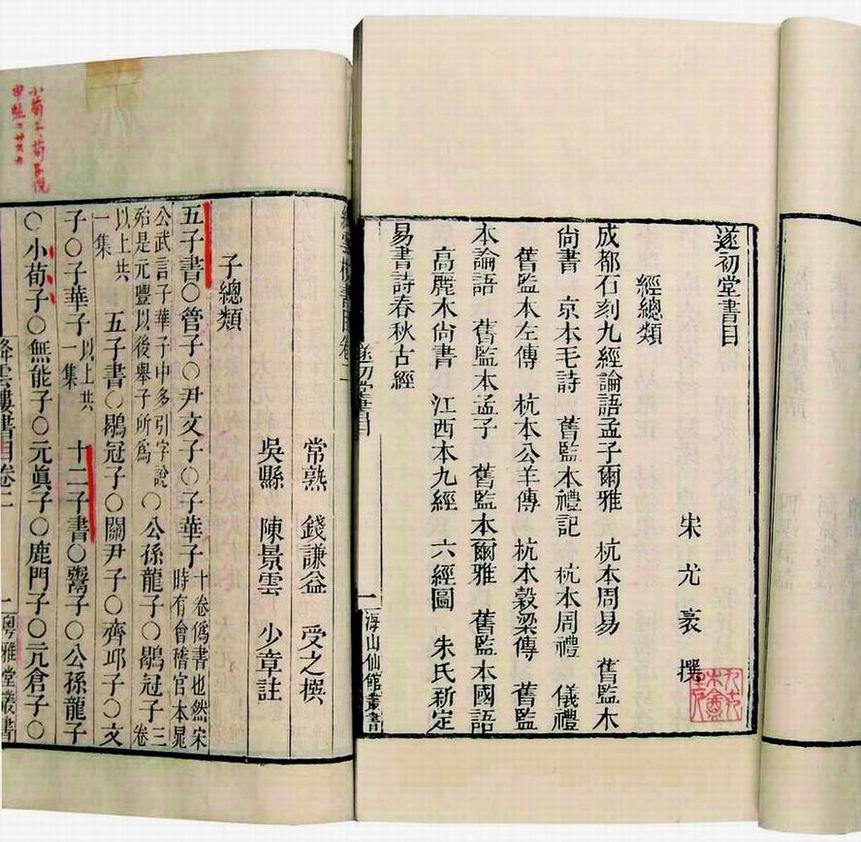 遂初堂書目
宋 尤袤 撰
經總類
成都石刻九經論語孟子爾雅 杭本周易 舊監本
尚書 京本毛詩 舊監本禮記 杭本周禮 儀禮
舊監本左傳 杭本公羊傳 杭本穀梁傳 舊監
本論語 舊監本孟子 舊監本爾雅 舊監本國語
高麗本尚書 江西本九經 六經圖 朱氏新定
易書詩春秋古經
遂初堂書目 一 海山仙館叢書
絳雲樓書目卷二
常熟 錢謙益 受之撰
吳縣 陳景雲 少章註
子總類
五子書〇管子〇尹文子〇子華子十卷偽書也然宋時有會稽官本晁
公武言子華子中多引字說殆是元豐以後舉子所為〇公孫龍子〇鶡冠子三卷
以上共一集 五子書〇鶡冠子〇關尹子〇齊邱子〇文
子〇子華子以上共一集 十二子書〇鬻子〇公孫龍子
〇小荀子〇無能子〇元眞子〇鹿門子〇亢倉子〇
絳雲樓書目卷二 一 粵雅堂叢書